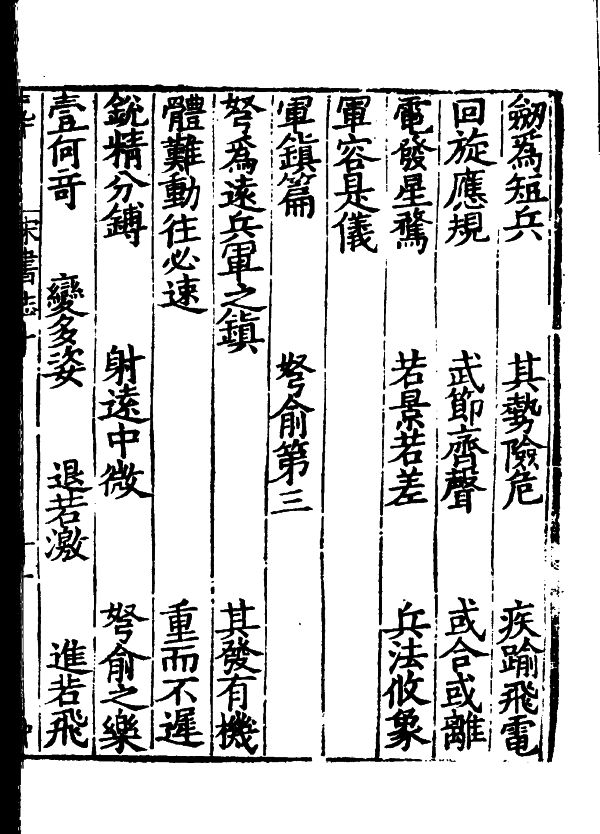 劒爲短兵　其勢險危　疾踰飛電
回旋應規　武節齊聲　或合或離
電發星騖　若景若差　兵法攸象
軍容是儀
軍鎮篇　弩俞第三
弩爲遠兵軍之鎮　其發有機
體難動往必速　重而不遲
銳精分鎛　射遠中微　弩俞之樂
壹何竒　變多姿　退若激　進若飛
宋書志十